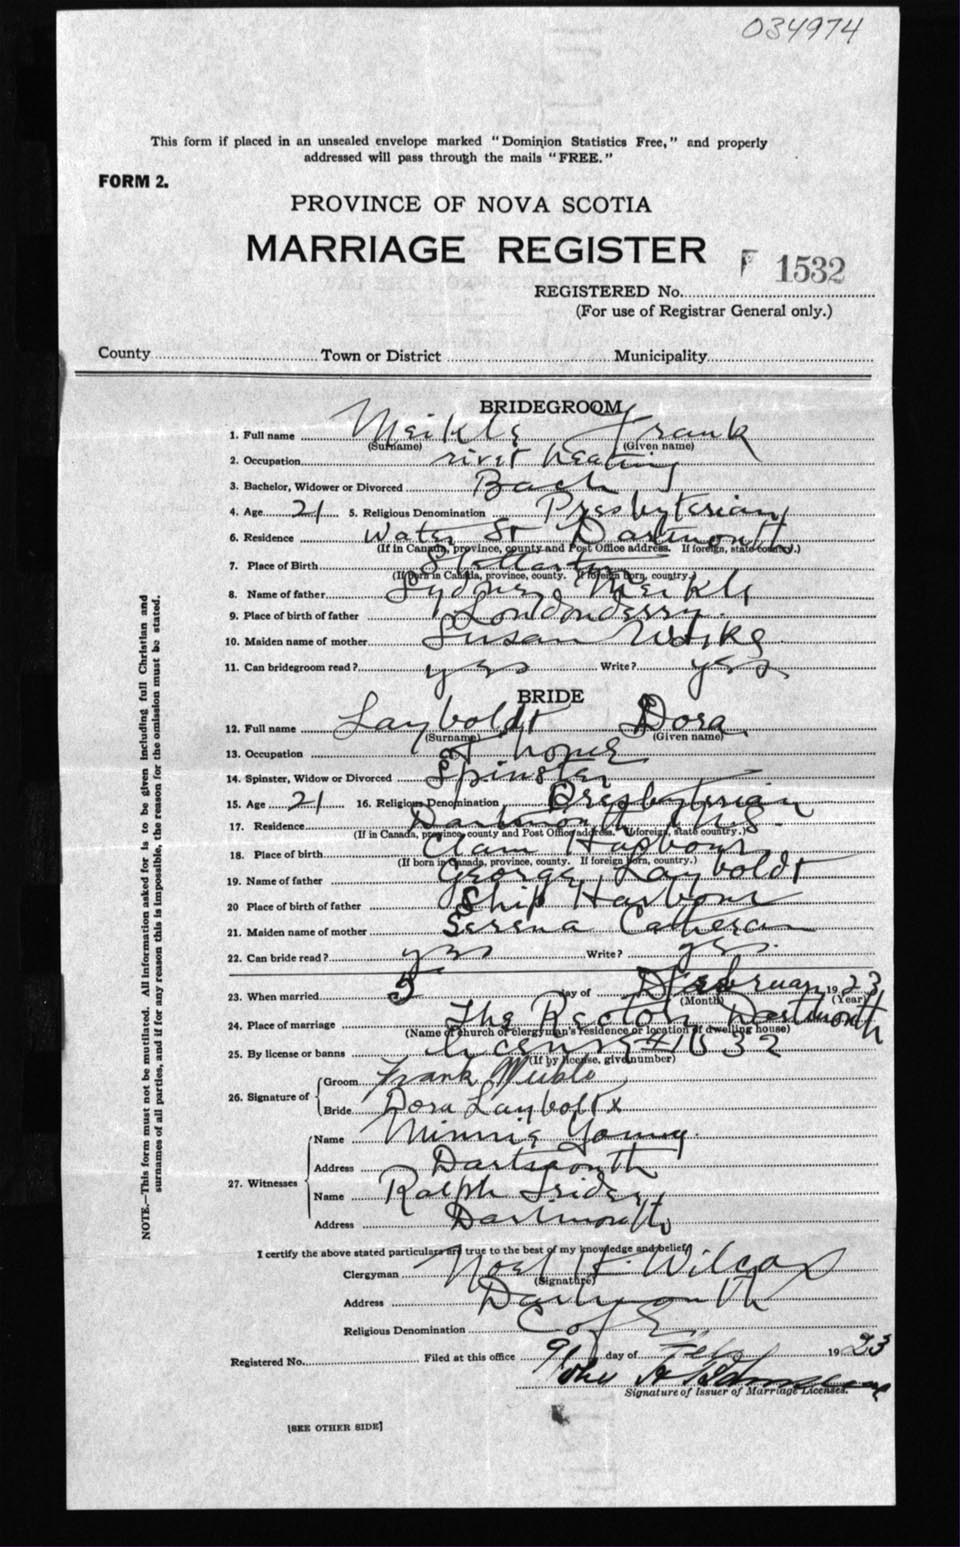 034974
This form if placed in an unsealed envelope marked "Dominion Statistics Free," and properly
addressed will pass through the mails "FREE."
FORM 2.
PROVINCE OF NOVA SCOTIA
MARRIAGE REGISTER
F 1532
REGISTERED No.
(For use of Registrar General only.)
County Town or District Municipality
BRIDEGROOM
1. Full name Meikle Frank
(Surname) (Given name)
2. Occupation rivet heating
3. Bachelor, Widower or Divorced Bach
4. Age 21 5. Religious Denomination Presbyterian
6. Residence Water St Dartmouth
(If in Canada, province, county and Post Office address. If foreign, state country.)
7. Place of Birth
(If born in Canada, province, county. If foreign born, country.)
8. Name of father Sydney Meikle
9. Place of birth of father Londonderry
10. Maiden name of mother Susan
11. Can bridegroom read? yes Write? yes
BRIDE
12. Full name Layboldt Dora
(Surname) (Given name)
13. Occupation at home
14. Spinster, Widow or Divorced Spinster
15. Age 21 16. Religious Denomination Presbyterian
17. Residence Dartmouth N.S.
(If in Canada, province, county and Post Office address. If foreign, state country.)
18. Place of birth Clam Harbour
(If born in Canada, province, county. If foreign born, country.)
19. Name of father George Layboldt
20 Place of birth of father Ship Harbour
21. Maiden name of mother Serena
22. Can bride read? yes Write? yes.
23. When married 5 day of February 1923
(Month) (Year)
24. Place of marriage The Rectory Dartmouth
(Name of church or clergyman's residence or location of dwelling house)
25. By license or banns license # 1532
(If by license, give number)
26. Signature of
Groom Frank
Bride Dora Layboltx
27. Witnesses
Name Minnie Young
Address Dartmouth
Name Ralph
Address Dartmouth
I certify the above stated particulars are true to the best of my knowledge and belief,
Clergyman Noel H. Wilcox
(Signature)
Address Dartmouth
Religious Denomination C of E
Registered No. Filed at this office 9 day of Feby 1923
Signature of Issuer of Marriage Licenses.
[SEE OTHER SIDE]
NOTE.—This form must not be mutilated. All information asked for is to be given including full Christian and
surnames of all parties, and if for any reason this is impossible, the reason for the omission must be stated.